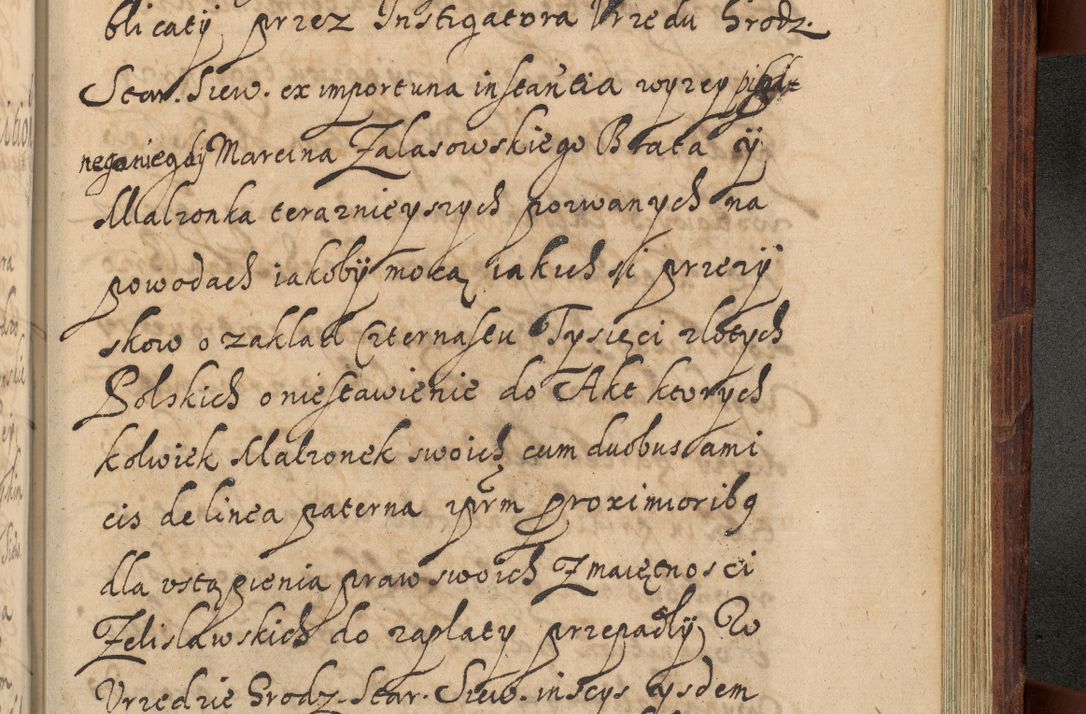 blicatÿ przez Instigatora Vrzedu Grodz.
Star. Siew. ex importuna instantia wyzey
nego niegdÿ Marcina Zalasowskiego Brata ÿ
Malzonka teraznieyszych pozwanych na
powodach iakobÿ mocą iakichsi przezÿ
skow o zaklad Czternastu Tysięci zlotych
Polskich o niestawienie do Akt ktorych
kolwiek Malzonek swoich cum duobus ami
cis de linea paterna proximioribg
dla vstąpienia praw swoich Z maiętnosci
Zelislawskich do zaplaty przepadlÿ W
Vrzędzie Grodz. Star. Siew. inscys eysdem